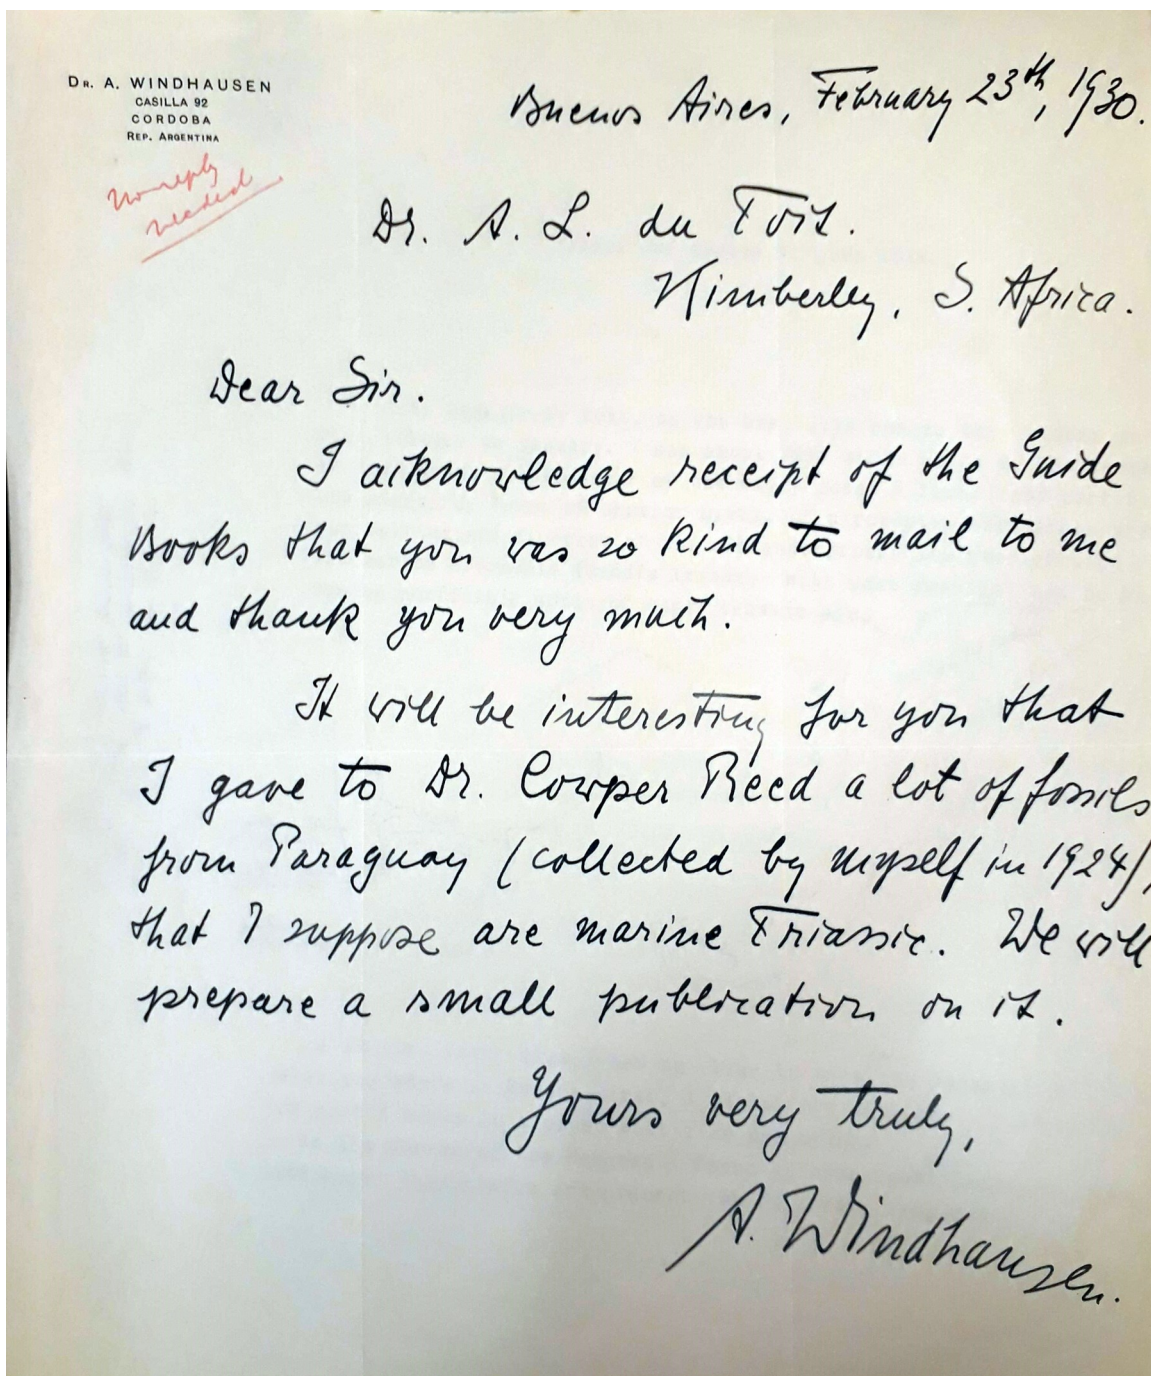 DR. A. WINDHAUSEN
CASILLA 92
CORDOBA
REP. ARGENTINA
No reply
needed
Buenos Aires, February 23th, 1930.
Dr. A. L. du Toit.
Kimberley, S. Africa.
Dear Sir.
I acknowledge receipt of the Guide
Books that you was so kind to mail to me
and thank you very much.
It will be interesting for you that
I gave to Dr. Cowper Reed a lot of fossils
from Paraguay (collected by myself in 1924),
that I suppose are marine Triassic. We will
prepare a small publication on it.
Yours very truly,
A. Windhausen.